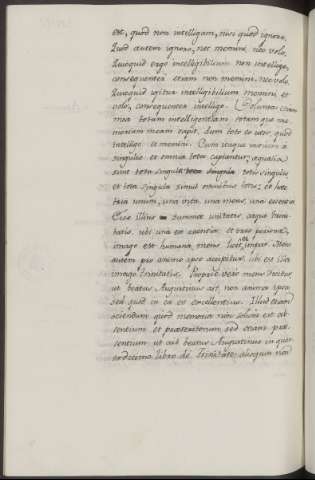 est, quod non intelligam, nisi quod ignoro.
Quod autem ignoro, nec memini, nec volo.
Quicquid ergo intelligibilium non intellego,
consequenter etiam non memini, nec volo.
Quicquid igitur intelligibilium memini, et
volo, consequenter intellego. Voluntas etiam
mea totam intelligentiam totamque me-
moriam meam capit, dum toto eo utor, quod
intellego et memini. Cum itaque invicem à
singulis et omnia tota capiantur; aequalia
sunt tota singula totis singulis
et tota singula simul omnibus totis; et haec
tria unum, una vita, una mens, una essentia
Ecce illius summae unitatis, atque Trini-
tatis, ubi una est essentia, et tres personae,
imago est humana mens licet impar. Mens
autem pro animo ipso accipitur, ubi est illa
imago Trinitatis. Propriè vero mens dicitur,
ut beatus Augustinus ait, non anima ipsa,
sed quod in ea est excellentius. Illud etiam
sciendum quod memoria non solum est ab-
sentium et praeteritorum, sed etiam prae-
sentium ut ait beatus Augustinus in quar-
to decimo libro de Trinitate; alioquin non